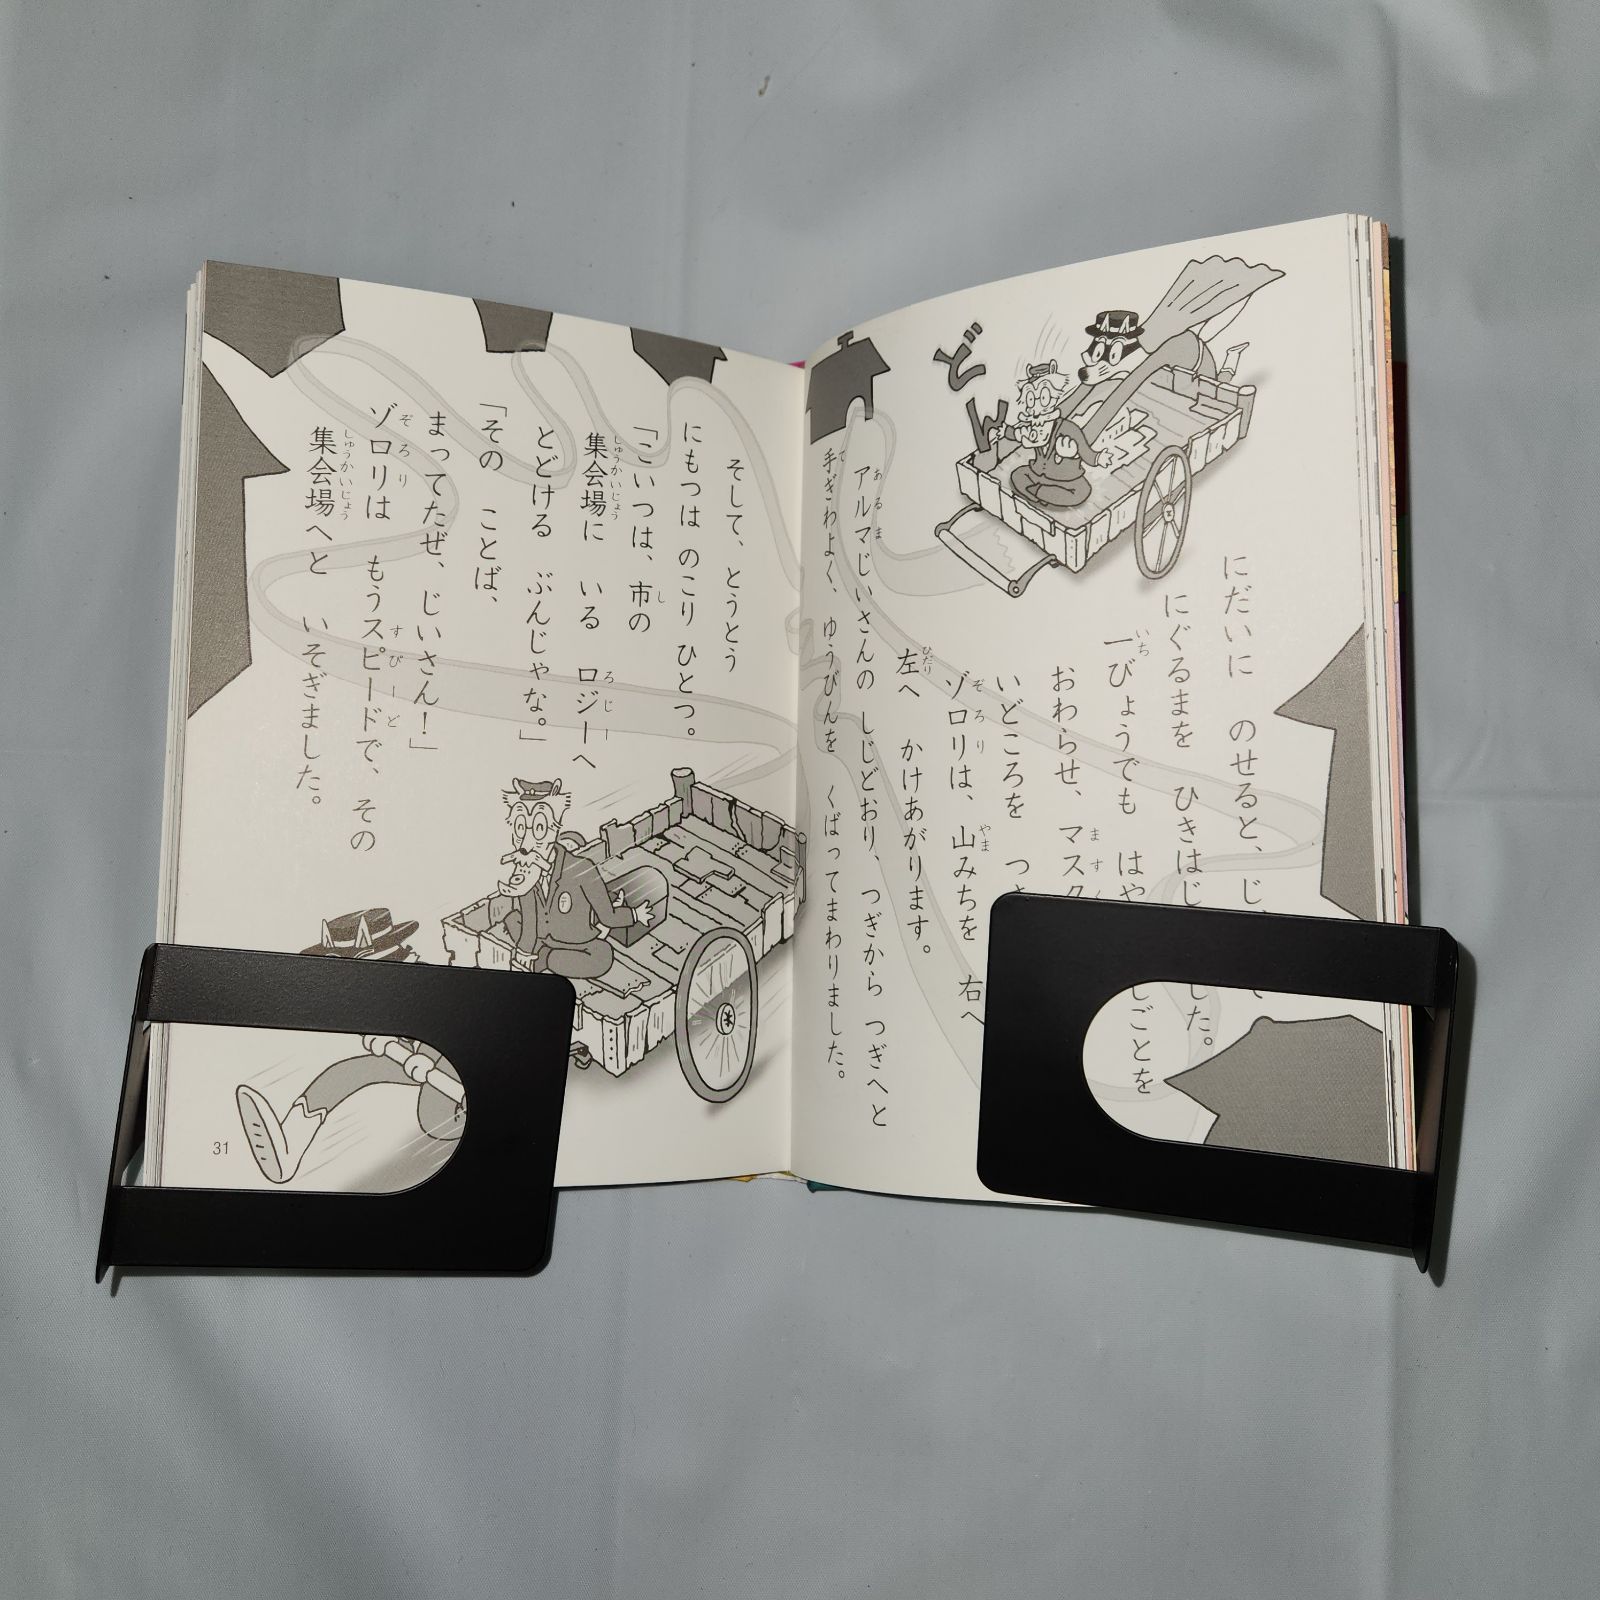 どん
にだいに のせると、じ
にぐるまを ひきはじ した。
一びょうでも はや しごとを
おわらせ、マスク
いどころを つ
ゾロリは、山みちを 右へ
左へ かけあがります。
アルマじいさんの しじどおり、つぎから つぎへと
手ぎわよく、ゆうびんを くばってまわりました。
そして、とうとう
にもつは のこり ひとつ。
「こいつは、市の
集会場に いる ロジーへ
とどける ぶんじゃな。」
「その ことば、
まってたぜ、じいさん!」
ゾロリは もうスピードで、その
集会場へと いそぎました。
31